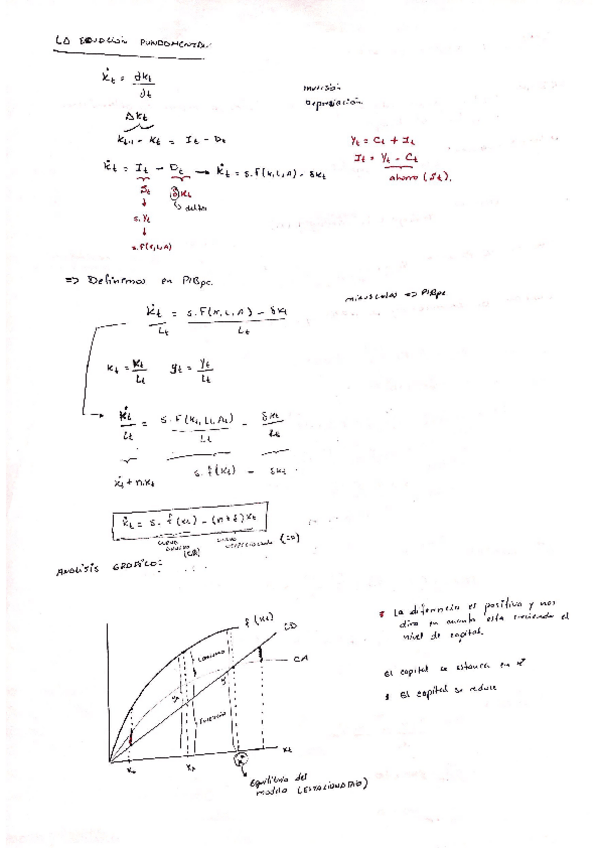 LA ECUACIÓN FUNDAMENTAL:
K̇t = dKt / dt
inversión
Depreciación
ΔKt
Kt+1 - Kt = It - Dt
Yt = Ct + It
It = Yt - Ct
ahorro (St).
K̇t = It - Dt → K̇t = s.F(K,L,A) - δKt
St δKt
↳ delta
s.Yt
s.F(K,L,A)
=> Definimos en PIBpc.
minusculas => PIBpc
K̇t / Lt = s.F(K,L,A) - δKt / Lt
kt = Kt / Lt yt = Yt / Lt
K̇t / Lt = s.F(Kt,Lt,At) / Lt - δKt / Lt
k̇t + n.kt s.f(kt) - δkt
k̇t = s.f(kt) - (n+δ)kt
CURVA AHORRO (CA) CURVA DEPRECIACION (CD)
ANÁLISIS GRÁFICO:
f(kt)
CD
CONSUMO
CA
INVERSIÓN
kt
Equilibrio del
modelo (ESTACIONARIO)
La diferencia es positiva y nos
dira en cuanto esta creciendo el
nivel de capital.
El capital se estanca en k*
El capital se reduce